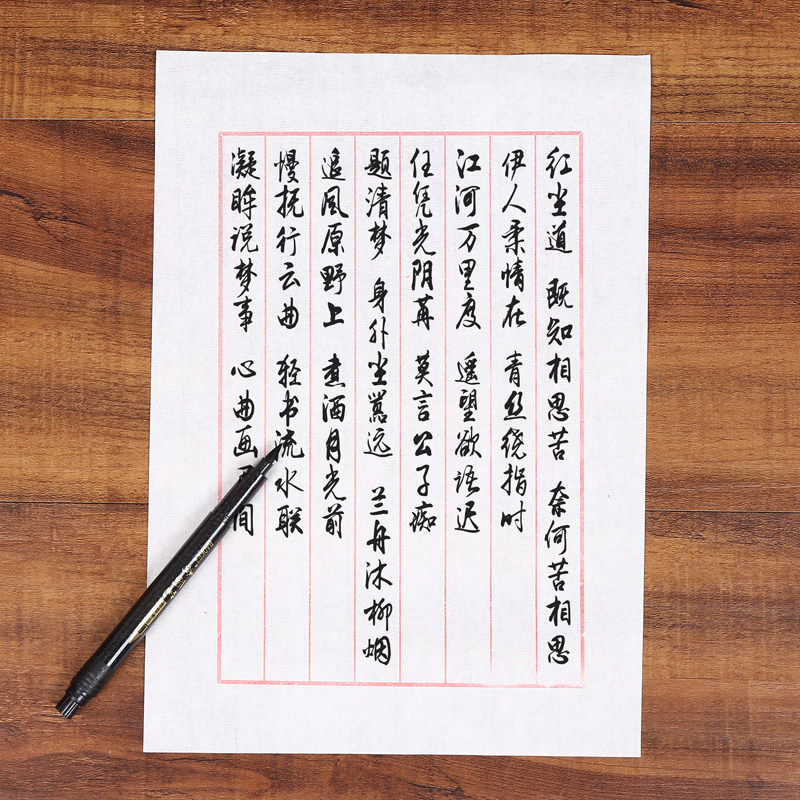 红尘道 既知相思苦 奈何苦相思
伊人柔情在 青丝绕指时
江河万里度 遥望欲语迟
任凭光阴苒 莫言公子痴
题清梦 身外尘嚣远 兰舟沐柳烟
追风原野上 煮酒月光前
慢抚行云曲 轻书流水联
凝眸说梦事 心曲画间